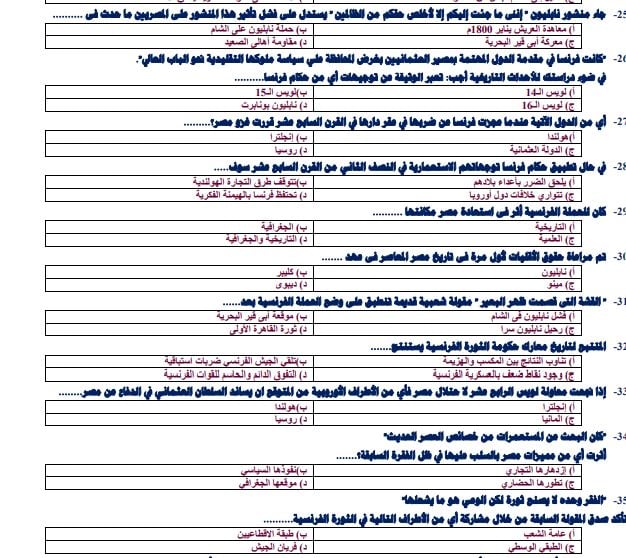 25- جاء منشور نابليون " إننى ما جئت إليكم إلا لأخلص حقكم من الظالمين " يستدل على فشل تأثير هذا المنشور على المصريين ما حدث فى ...........
أ) معاهدة العريش يناير 1800م ب) حملة نابليون على الشام
ج) معركة أبى قير البحرية د) مقاومة أهالي الصعيد
26- "كانت فرنسا في مقدمة الدول المهتمة بمصير العثمانيين بغرض المحافظة علي سياسة ملوكها التقليدية نحو الباب العالي".
في ضوء دراستك للأحداث التاريخية أجب: تعبر الوثيقة عن توجيهات أي من حكام فرنسا..........
أ) لويس الـ14 ب)لويس الـ15
ج) لويس الـ16 د) نابليون بونابرت
27- أي من الدول الآتية عندما عجزت فرنسا من ضربها في عقر دارها في القرن السابع عشر قررت غزو مصر؟..........
أ)هولندا ب) إنجلترا
ج) الدولة العثمانية د) روسيا
28- في حال تطبيق حكام فرنسا توجهاتهم الاستعمارية في النصف الثاني من القرن السابع عشر سوف.....
أ) يلحق الضرر بأعداء بلادهم ب)تتوقف طرق التجارة الهولندية
ج) تتوارى خلافات دول أوروبا د) تحتفظ فرنسا بالهيمنة الفكرية
29- كان للحملة الفرنسية أثر فى استعادة مصر مكانتها ..........
أ) التاريخية ب) الجغرافية
ج) العلمية د) التاريخية والجغرافية
30- تم مراعاة حقوق الأقليات لأول مرة فى تاريخ مصر المعاصر فى عهد .......
أ) نابليون ب) كليبر
ج) مينو د) ديبوى
31- " القشة التى قصمت ظهر البعير " مقولة شعبية قديمة تنطبق على وضع الحملة الفرنسية بعد......
أ) فشل نابليون فى الشام ب) موقعة أبى قير البحرية
ج) رحيل نابليون سرا د) ثورة القاهرة الأولى
32- المتتبع لتاريخ معارك حكومة الثورة الفرنسية يستنتج.......
أ) تناوب النتائج بين المكسب والهزيمة ب)تلقي الجيش الفرنسي ضربات استباقية
ج) وجود نقاط ضعف بالعسكرية الفرنسية د) التفوق الدائم والحاسم للقوات الفرنسية
33- إذا نجحت محاولة لويس الرابع عشر لا حتلال مصر فأي من الأطراف الأوروبية من المتوقع ان يساند السلطان العثماني في الدفاع عن مصر........
أ) إنجلترا ب)هولندا
ج) المانيا د) روسيا
34- "كان البحث عن المستعمرات من خصائص العصر الحديث"
أثرت أي من مميزات مصر بالسلب عليها في ظل الفقرة السابقة؟.......
أ) إزدهارها التجاري ب)نفوذها السياسي
ج) تطورها الحضاري د) موقعها الجغرافي
35- "الفقر وحده لا يصنع ثورة لكن الوعي هو ما يشعلها"
تأكد صدق المقولة السابقة من خلال مشاركة أي من الأطراف التالية في الثورة الفرنسية..........
أ) عامة الشعب ب) طبقة الاقطاعيين
ج) الطبقى الوسطي د) فريان الجيش